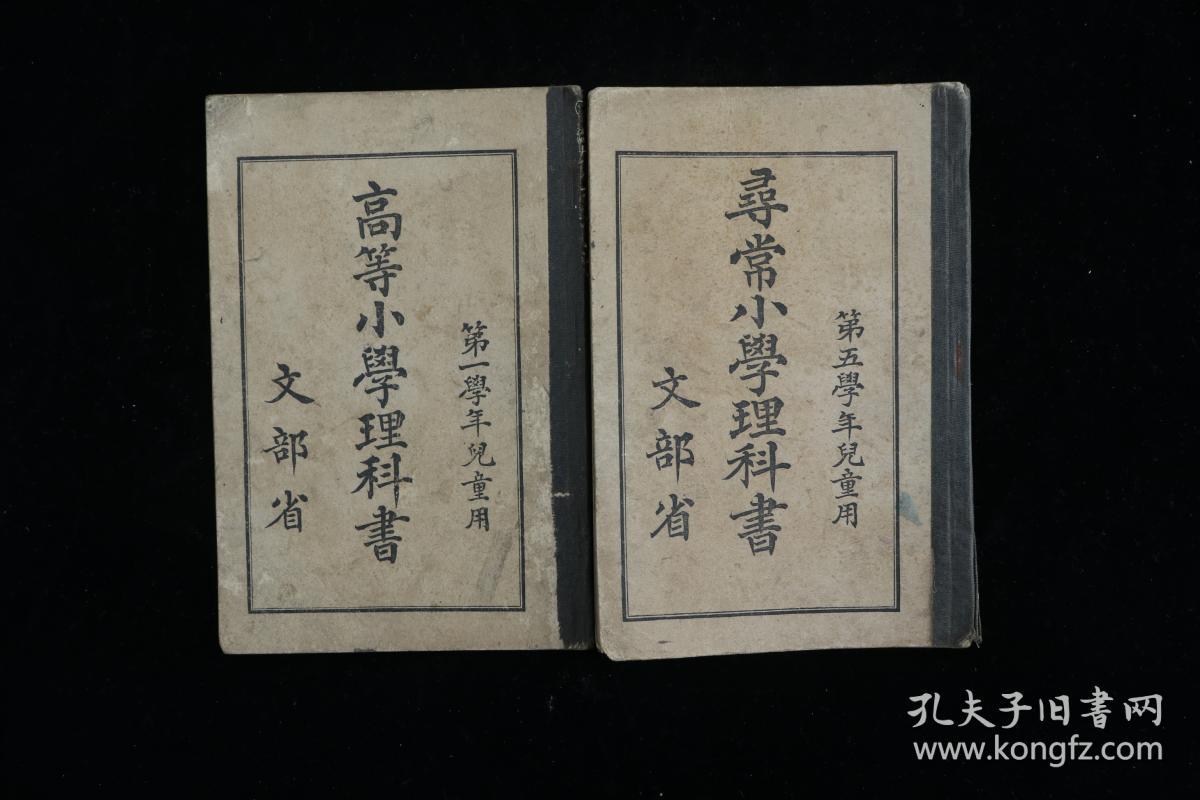 第五學年兒童用
尋常小學理科書
文部省
第一學年兒童用
高等小學理科書
文部省
孔夫子旧書网
www.kongfz.com